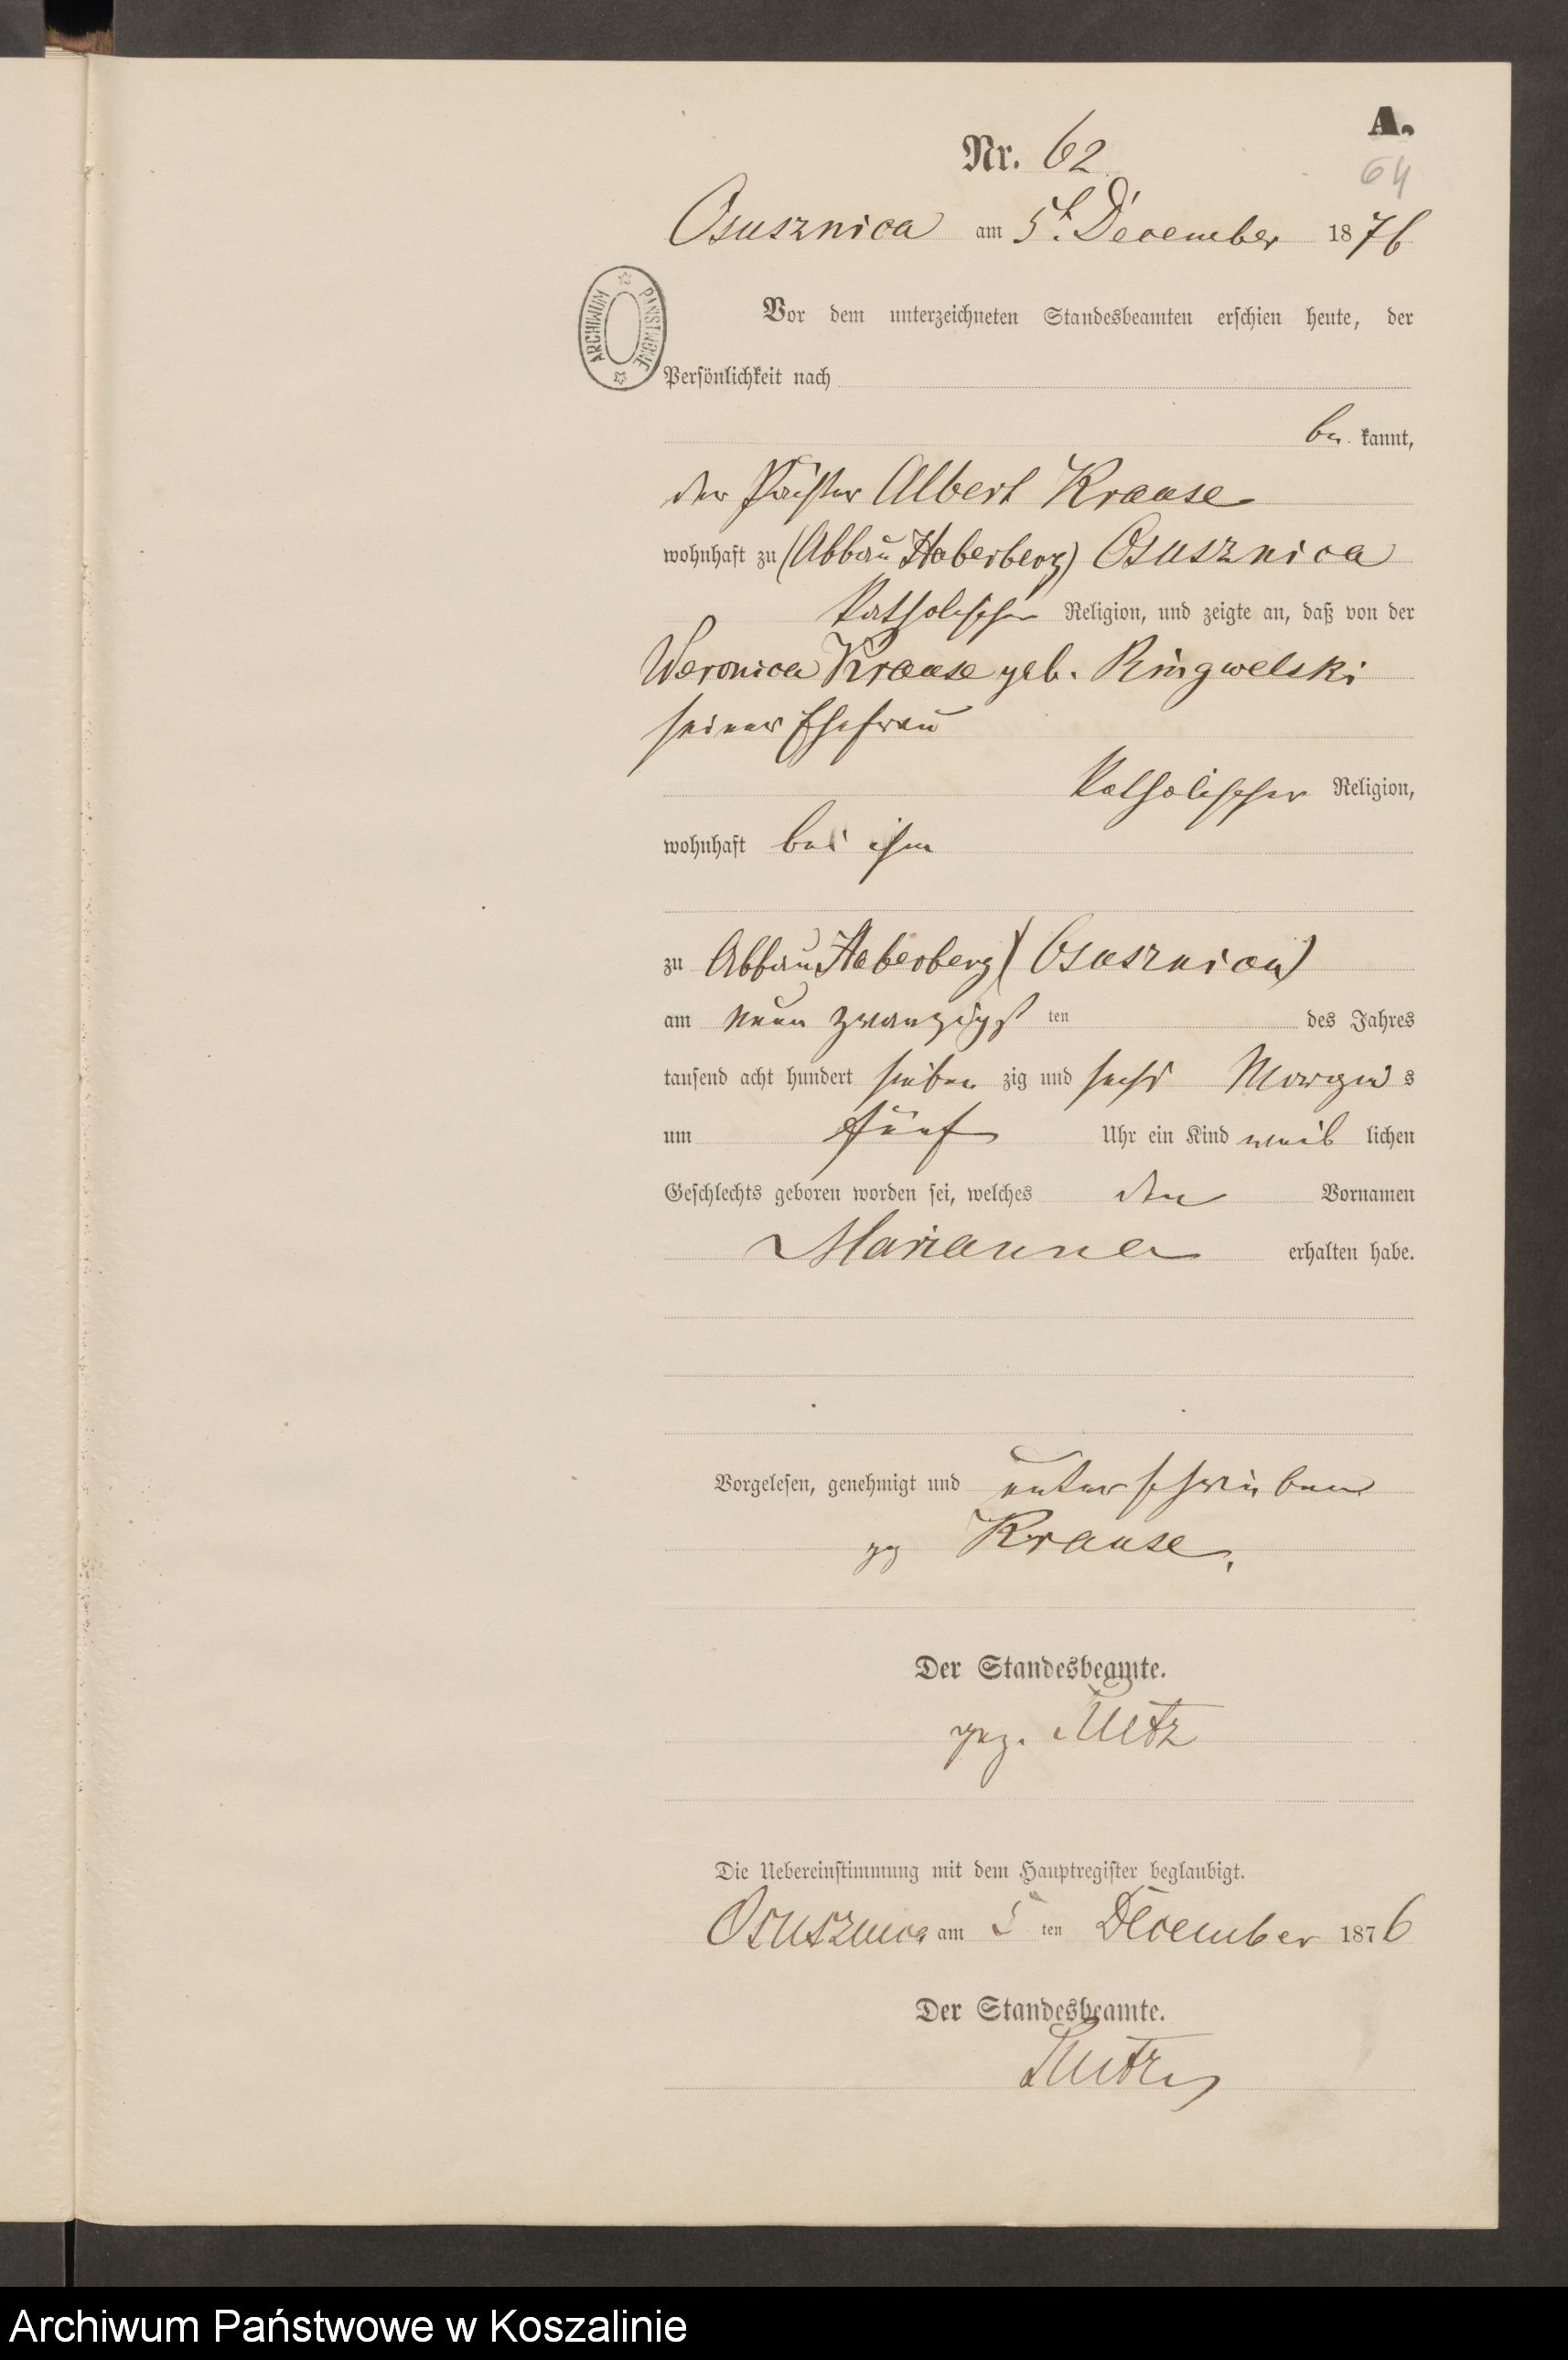 A.
Nr. 62
64
Osusznica am 5t. December 1876
ARCHIWUM PAŃSTWOWE
Vor dem unterzeichneten Standesbeamten erschien heute, der
Persönlichkeit nach
be kannt,
der Pächter Albert Krause
wohnhaft zu (Abbau Haberberg) Osusznica
katholischer Religion, und zeigte an, daß von der
Weronica Krause geb. Ringwelski
seiner Ehefrau
katholischer Religion,
wohnhaft bei ihm
zu Abbau Haberberg (Osusznica)
am neun zwanzigst ten des Jahres
tausend acht hundert sieben zig und sechs Morgens s
um fünf Uhr ein Kind weib lichen
Geschlechts geboren worden sei, welches den Vornamen
Marianna erhalten habe.
Vorgelesen, genehmigt und unterschrieben
gz Krause.
Der Standesbeamte.
gez. Metz
Die Uebereinstimmung mit dem Hauptregister beglaubigt.
Osusznica am 5 ten December 1876
Der Standesbeamte.
Archiwum Państwowe w Koszalinie